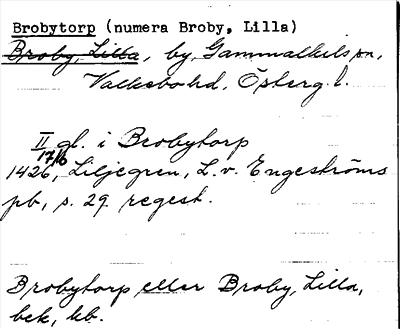 Brobytorp (numera Broby, Lilla)
Broby, Lilla, by, Gammalkils sn,
Valkebo hd, Österg. l.
II gl. i Brobytorp
1426 17/6, Liljegren, L. v. Engeströms
pb, s. 29. regest.
Brobytorp eller Broby, Lilla,
bek, kb.